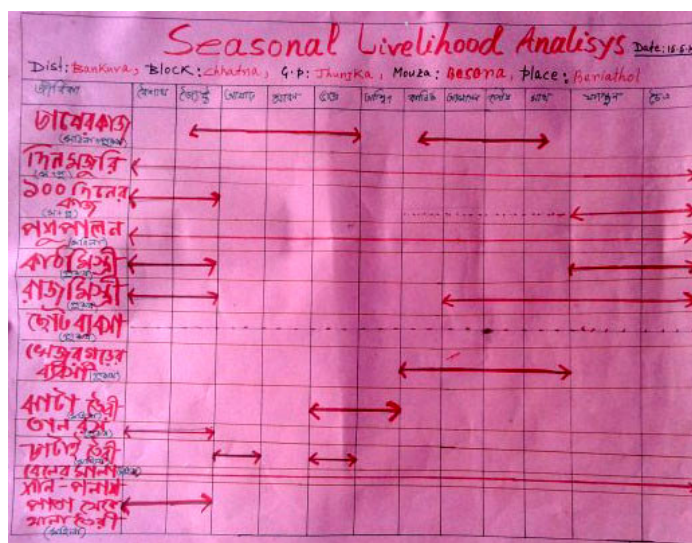 Seasonal Livelihood Analisys Date: 15.5.
Dist: Bankura, Block: Chhatna, G.P: Jhunjka, Mouza: Besona, place: Beriathol
জীবিকা বৈশাখ জ্যৈষ্ঠ আষাঢ় শ্রাবণ ভাদ্র আশ্বিন কার্তিক অগ্রহায়ণ পৌষ মাঘ ফাল্গুন চৈত্র
চাষের কাজ
দিনমজুরি
১০০ দিনের
কাজ
পশুপালন
(মহিলা)
কাঠ মিস্ত্রী
(পুরুষ)
রাজমিস্ত্রী
(পুরুষ)
ছোট ব্যবসা
(পুরুষ)
খেজুর গুড়ের
ব্যবসা (পুরুষ)
ঝাঁটা তৈরী
তাল রস
চাটাই তৈরী
বেলের মালা
শাল-পলাশ
পাতা থেকে
থালা তৈরী
(মহিলা)